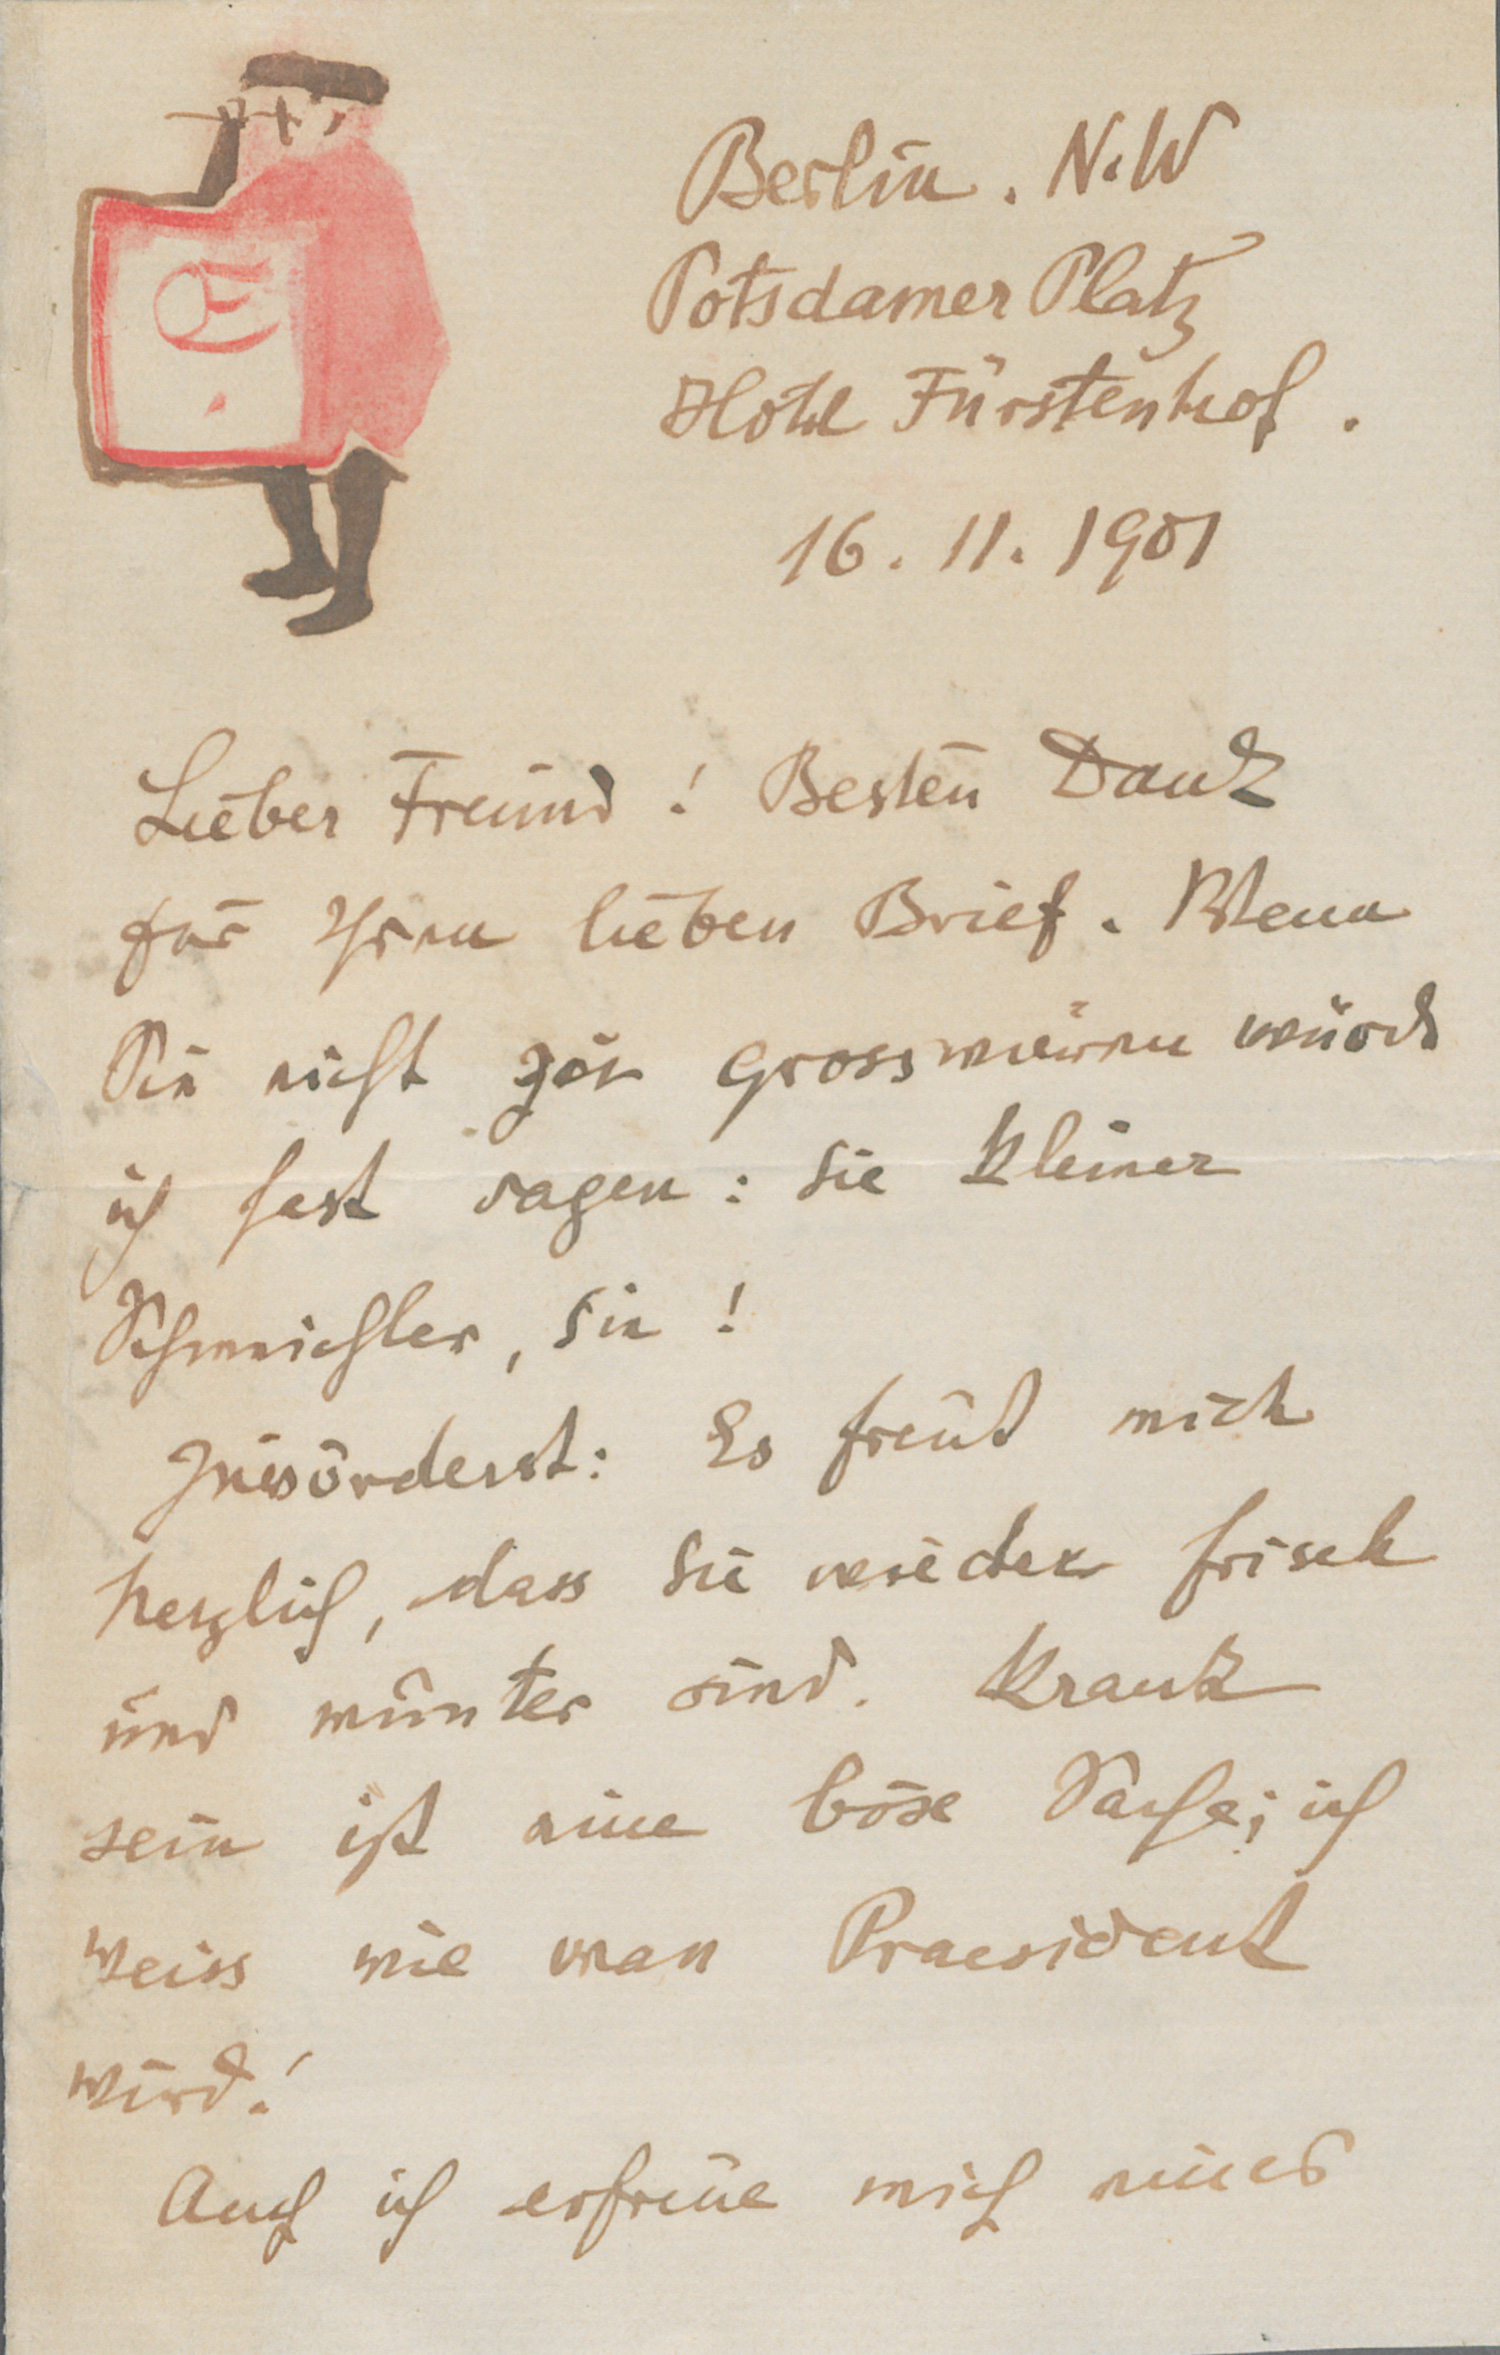 Berlin. N.W
Potsdamer Platz
Hotel Fürstenhof.
16. 11. 1901
Lieber Freund! Besten Dank
für Ihren lieben Brief. Wenn
Sie nicht zu gross wären würde
ich fast sagen: Sie kleiner
Schmeichler, Sie!
Zuvörderst: Es freut mich
herzlich, dass Sie wieder frisch
und munter sind. Krank
sein ist eine böse Sache; ich
weiss wie man Praesident
wird!
Auch ich erfreue mich eines